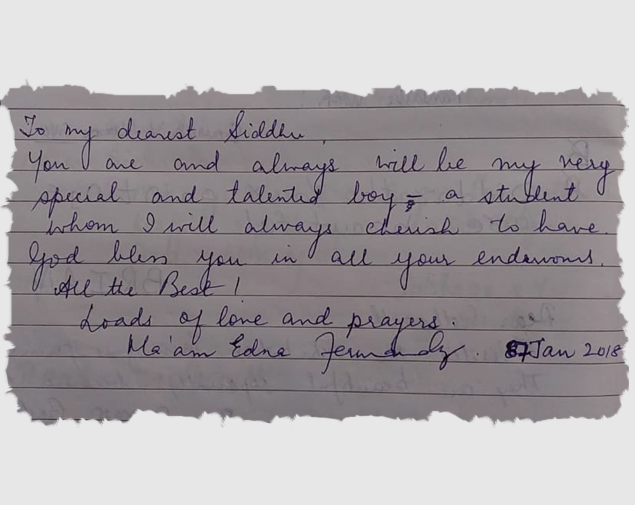 To my dearest Siddhu,
You are and always will be my very
special and talented boy - a student
whom I will always cherish to have.
God bless you in all your endeavours.
All the Best!
Loads of love and prayers.
Ma'am Edna Fernandez. Jan 2018